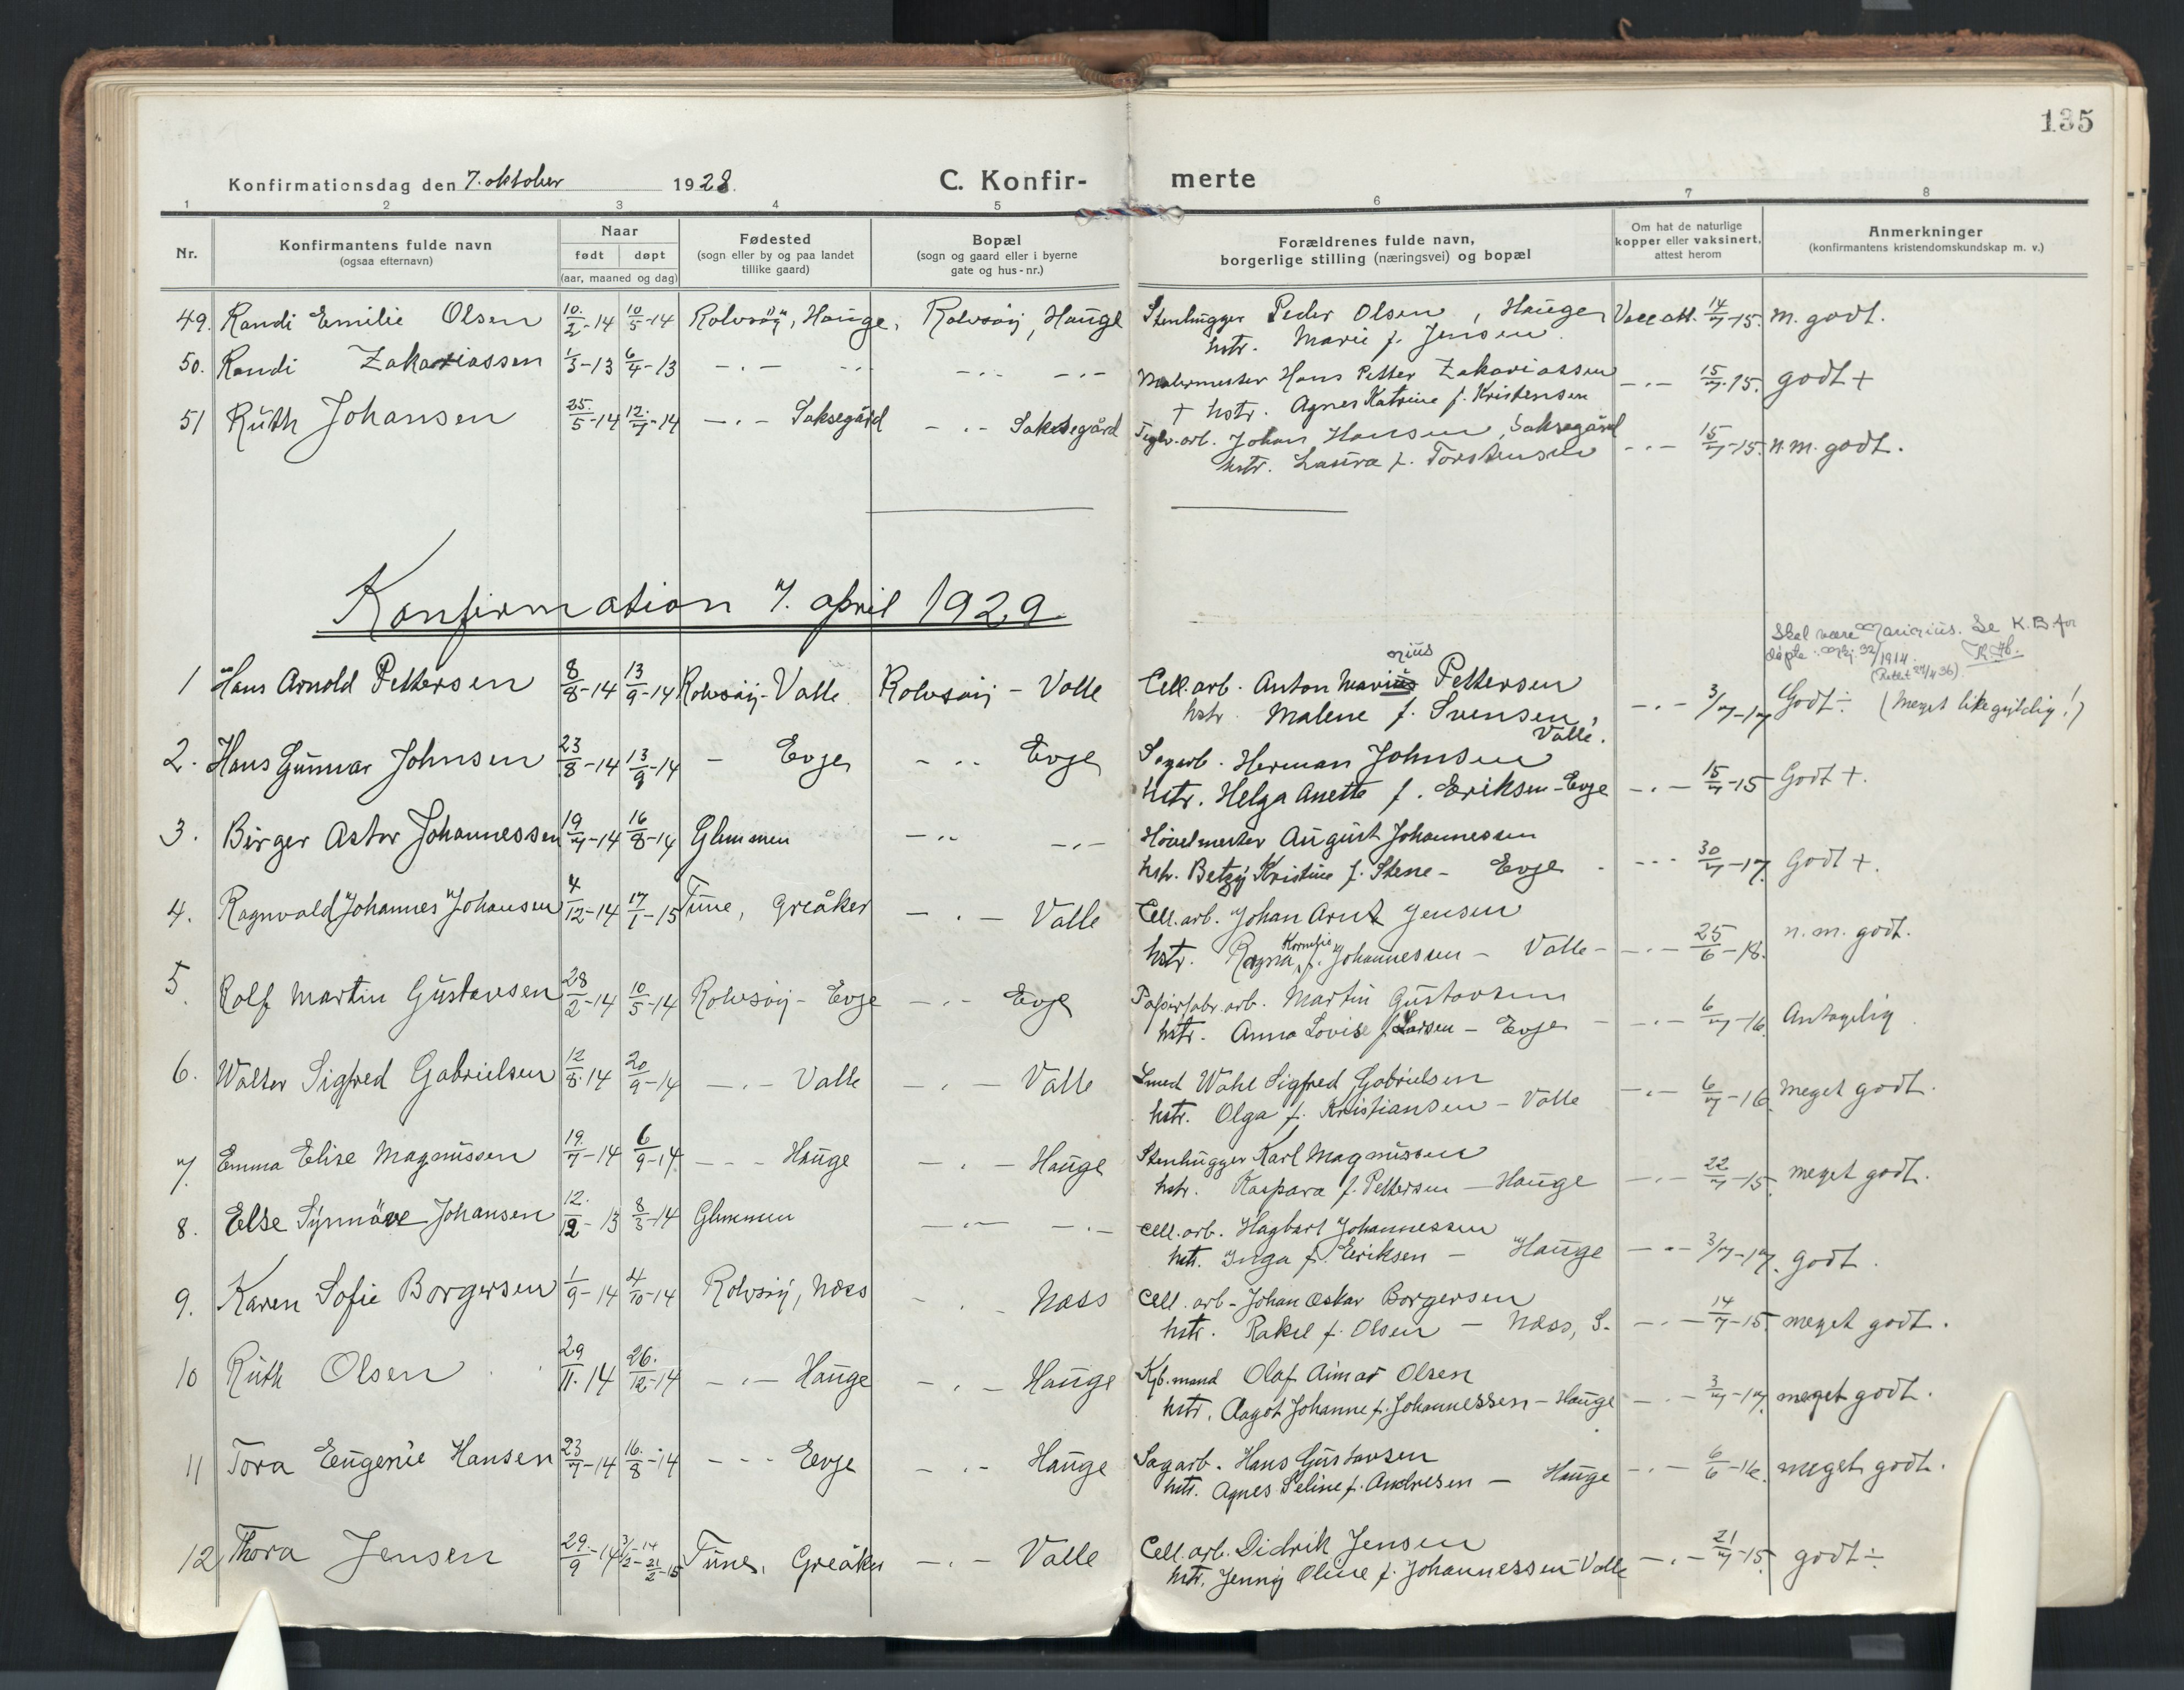 135
Konfirmationsdag den 7. oktober 1928. C. Konfir- merte
1 2 3 4 5 6 7 8
Nr. Konfirmantens fulde navn (ogsaa efternavn) Naar født døpt (aar, maaned og dag) Fødested (sogn eller by og paa landet tillike gaard) Bopæl (sogn og gaard eller i byerne gate og hus-nr.) Forældrenes fulde navn, borgerlige stilling (næringsvei) og bopæl Om hat de naturlige kopper eller vaksinert, attest herom Anmerkninger (konfirmantens kristendomskundskap m. v.)
49. Randi Emilie Olsen 10./2-14 10/5-14 Rolvsøy, Hauge, Rolvsøy, Hauge Stenhugger Peder Olsen, Hauge Vacc att. 14/7-15. m. godt.
hstr. Marie f. Jensen.
50. Randi Zakariassen 1/3-13 6/4-13 -.- -.- -.- -.- Malermester Hans Petter Zakariassen -.- 15/7-15. godt +
+ hstr. Agnes Katrine f. Kristensen
51 Ruth Johansen 25./5-14 12./7-14 -.- Saksegård -.- Saksegård Teglv.arb. Johan Hansen, Saksegård -.- 15/7-15. n.m. godt.
hstr. Laura f. Torstensen
Konfirmation 7. april 1929.
Skal være Maurius. Se K.B. for
døpte 1914.
1 Hans Arnold Pettersen 8/8-14 13/9-14 Rolvsøy-Valle Rolvsøy - Valle Cell.arb. Anton Marius Pettersen -.- 3/7-17 Godt ÷ (Meget likegyldig!)
hstr. Malene f. Svensen, Valle.
2. Hans Gunnar Johnsen 23/8-14 13/9-14 - Evje -.- Evje Sagarb. Herman Johnsen
hstr. Helga Anette f. Eriksen - Evje -.- 15/7-15 Godt +.
3. Birger Astor Johannessen 19/7-14 16/8-14 Glemmen -.- -.- Høvelmester August Johannessen
hstr. Betzy Kristine f. Stene - Evje -.- 30/7-17. Godt +.
4. Ragnvald Johannes Johansen 4/12-14 17/1-15 Tune, Greåker -.- Valle Cell.arb. Johan Arnt Jensen
hstr. Ragna Kornelie f. Johannessen - Valle - -.- 25/6-18. n.m. godt.
5. Rolf Martin Gustavsen 28/2-14 10/5-14 Rolvsøy - Evje -.- Evje Papirfabr.arb. Martin Gustavsen
hstr. Anna Lovise f. Larsen - Evje - -.- 6/7-16. Antagelig
6. Walter Sigfred Gabrielsen 12/8-14 20/9-14 -.- Valle -.- Valle Smed Wahl Sigfred Gabrielsen
hstr. Olga f. Kristiansen - Valle -.- 6/7-16. Meget godt.
7. Emma Elise Magnussen 19./7-14 6/9-14 --- Hauge -.- Hauge Stenhugger Karl Magnussen
hstr. Kaspara f. Pettersen - Hauge -.- 22/7-15. meget godt.
8. Else Synnöve Johansen 12./12-13 8/3-14 Glemmen -.- -.- Cell.arb. Hagbart Johannessen
hstr. Inga f. Eriksen - Hauge -.- 3/7-17. godt.
9. Karen Sofie Borgersen 1/9-14 4/10-14 Rolvsøy, Næss -.- Næss Cell.arb - Johan Oskar Borgersen
hstr. Rakel f. Olsen - Næss, S. -.- 14/7-15. meget godt.
10 Ruth Olsen 29/11-14 26./12-14 -.- Hauge -.- Hauge Kjb.mand Olaf Aimar Olsen
hstr. Aagot Johanne f. Johannessen - Hauge -.- 3/7-17. meget godt.
11 Tora Eugenie Hansen 23/7-14 16./8-14 --- Evje -.- Hauge Sagarb. Hans Gustavsen
hstr. Agnes Seline f. Andresen - Hauge -.- 6/6-16. meget godt.
12 Thora Jensen 29./9-14 21/2-15 Tune, Greåker -.- Valle Cell.arb. Didrik Jensen
hstr. Jenny Oline f. Johannessen - Valle -.- 21/7-15. godt ÷